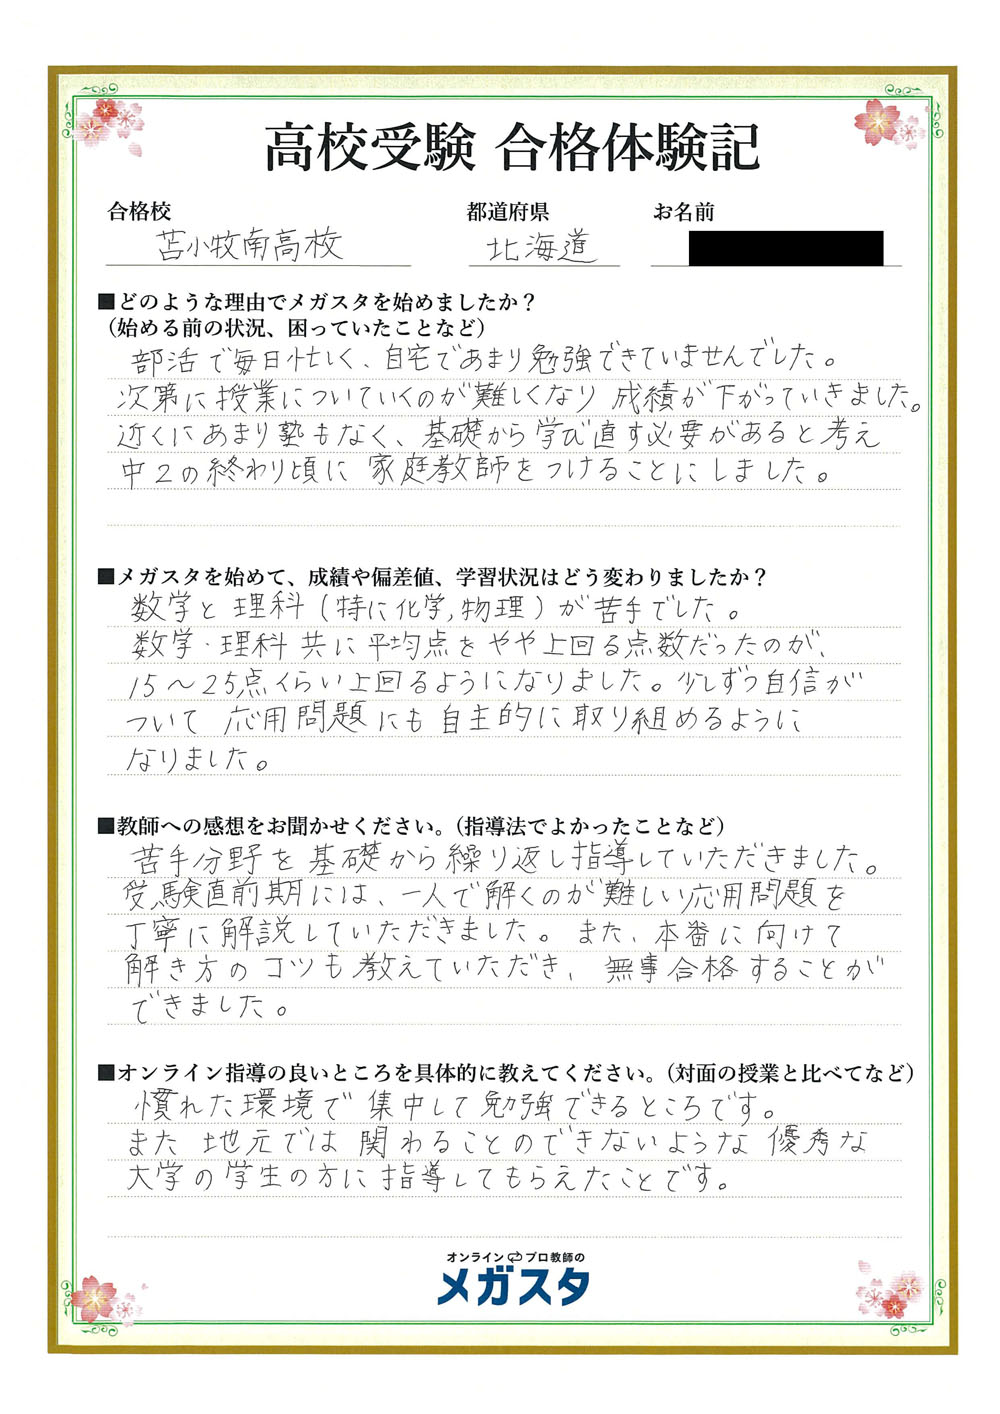 高校受験 合格体験記
合格校
都道府県
お名前
苫小牧南高校
北海道
■どのような理由でメガスタを始めましたか？
（始める前の状況、困っていたことなど）
部活で毎日忙しく、自宅であまり勉強できていませんでした。
次第に授業についていくのが難しくなり 成績が下がっていきました。
近くにあまり塾もなく、基礎から学び直す必要があると考え
中２の終わり頃に 家庭教師をつけることにしました。
■メガスタを始めて、成績や偏差値、学習状況はどう変わりましたか？
数学と理科（特に化学,物理）が苦手でした。
数学・理科共に平均点をやや上回る点数だったのが、
15〜25点くらい上回るようになりました。少しずつ自信が
ついて 応用問題にも自主的に取り組めるように
なりました。
■教師への感想をお聞かせください。（指導法でよかったことなど）
苦手分野を基礎から繰り返し指導していただきました。
受験直前期には、一人で解くのが難しい応用問題を
丁寧に解説していただきました。また、本番に向けて
解き方のコツも教えていただき、無事合格することが
できました。
■オンライン指導の良いところを具体的に教えてください。（対面の授業と比べてなど）
慣れた環境で集中して勉強できるところです。
また 地元では関わることのできないような優秀な
大学の学生の方に指導してもらえたことです。
オンライン プロ教師の
メガスタ